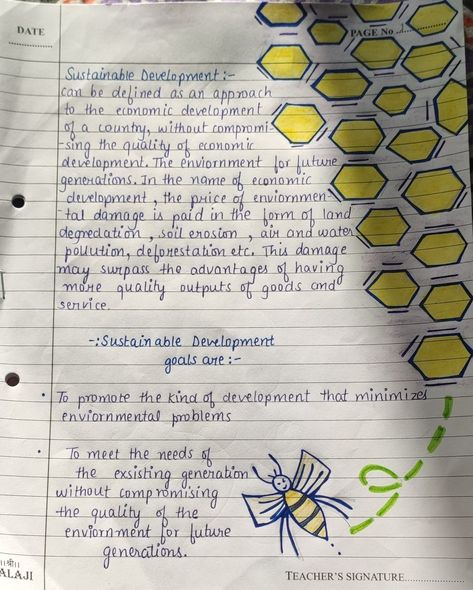 DATE
PAGE No 1
Sustainable Development :-
can be defined as an approach
to the economic development
of a country, without compromi-
-sing the quality of economic
development. The enviornment for future
generations. In the name of economic
development, the price of enviornmen-
tal damage is paid in the form of land
degredation, soil erosion, air and water
pollution, deforestation etc. This damage
may surpass the advantages of having
more quality outputs of goods and
service.
-:Sustainable Development
goals are:-
• To promote the kind of development that minimizes
enviornmental problems
• To meet the needs of
the exsisting generation
without compromising
the quality of the
enviornment for future
generations.
॥श्री॥
ALAJI
TEACHER'S SIGNATURE